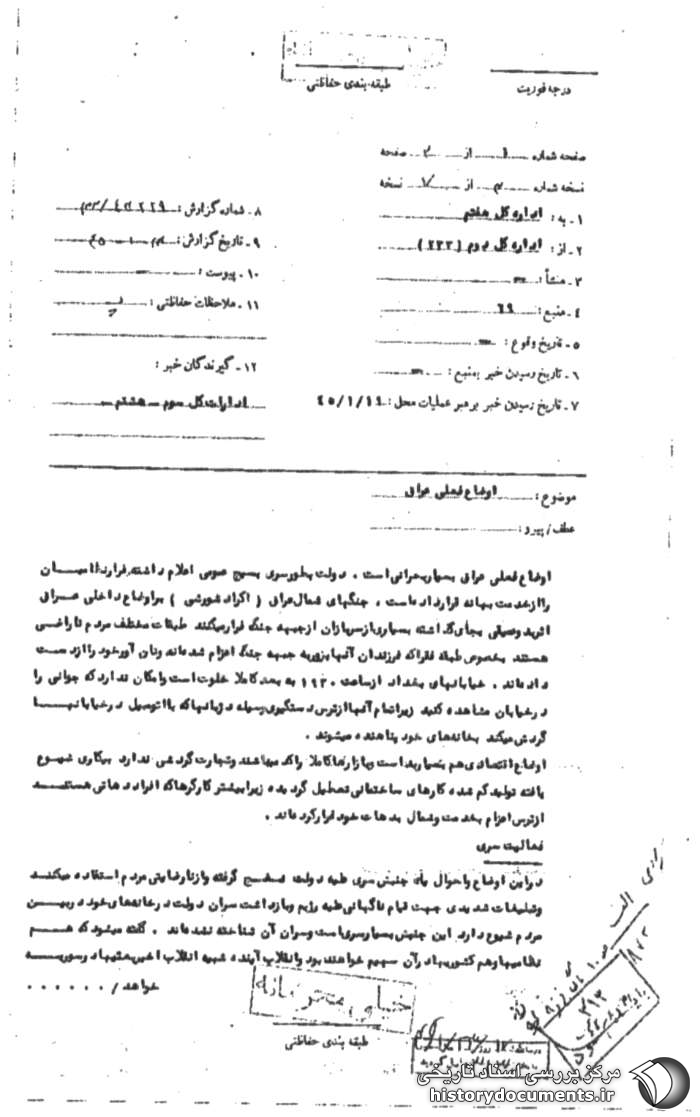 طبقه‌بندی حفاظتی
درجه فوریت
صفحه شماره ۱ از ۲ صفحه
نسخه شماره از ۷ نسخه
۱ـ به: اداره کل هشتم
۲ـ از: اداره کل دوم (۲۳۲)
۳ـ منشأ: ـ
۴ـ منبع: ۶۹
۵ـ تاریخ وقوع: ـ
۶ـ تاریخ رسیدن خبر بمنبع: ـ
۷ـ تاریخ رسیدن خبر برهبر عملیات محل: ۴۵/۱/۱۶
۸ـ شماره گزارش:
۹ـ تاریخ گزارش:
۱۰ـ پیوست: ـ
۱۱ـ ملاحظات حفاظتی:
۱۲ـ گیرندگان خبر:
ادارات کل سوم ـ هشتم ـ
موضوع: اوضاع فعلی عراق
عطف/پیرو:
اوضاع فعلی عراق بسیار بحرانی است . دولت بطور سری بسیج عمومی اعلام داشته، فرار نظامیان
را از خدمت بهانه قرار داده است ، جنگهای شمال عراق ( اکراد شورشی ) بر اوضاع داخلی عراق
اثر بد وعمیقی بجای گذاشته بسیاری از سربازان از جبهه جنگ فرار میکنند طبقات مختلف مردم ناراضی
هستند بخصوص طبقه فقرا که فرزندان آنها بزور به جبهه جنگ اعزام شده اند ونان آور خود را از دست
داده اند . خیابانهای بغداد از ساعت ۱۹۳۰ به بعد کاملا خلوت است وامکان ندارد که جوانی را
در خیابان مشاهده کنید زیرا تمام آنها از ترس دستگیری بوسیله دژبانها که با اتومبیل در خیابانها
گردش میکند بخانه‌های خود پناهنده میشوند .
اوضاع اقتصادی هم بسیار بد است وبازارها کاملا راکد میباشند وتجارت گردشی ندارد بیکاری شیوع
یافته تولید کم شده کارهای ساختمانی تعطیل گردیده زیرا بیشتر کارگرها که افراد دهاتی هستند
از ترس اعزام بخدمت وشمال بدهات خود فرار کرده اند .
فعالیت سری
در این اوضاع واحوال یک جنبش سری علیه دولت نضج گرفته واز نارضایتی مردم استفاده میکند
وتبلیغات شدیدی جهت قیام ناگهانی علیه رژیم وبازداشت سران دولت در خانه‌های خود در بین
مردم شیوع دارد. این جنبش بسیار سری است وسران آن شناخته نشده اند . گفته میشود که هم
نظامیها وهم کشوریها در آن سهیم خواهند بود وانقلاب آینده شبیه انقلاب اخیر
خواهد / . . . . . .
خیلی محرمانه
طبقه بندی حفاظتی
مرکز بررسی اسناد تاریخی
historydocuments.ir